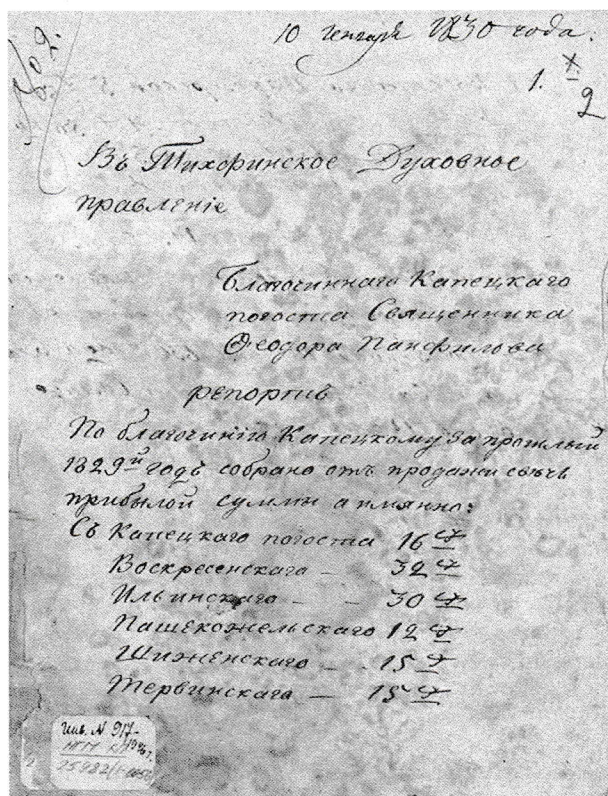 10 генваря 1830 года.
1.
2
Въ Тихфинское Духовное
правленіе
Благочиннаго Капецкаго
погоста Священника
Ѳеодора Панфилова
репортъ
По благочинію Капецкому за прошлый
1829й годъ собрано отъ продажи свѣчъ
прибылой суммы а имянно:
Съ Капецкаго погоста 16
Воскресенскаго — 32
Ильинскаго — — 30
Пашекожельскаго 12
Шиженскаго — 15
Тервинскаго — 15
инв. № 917-